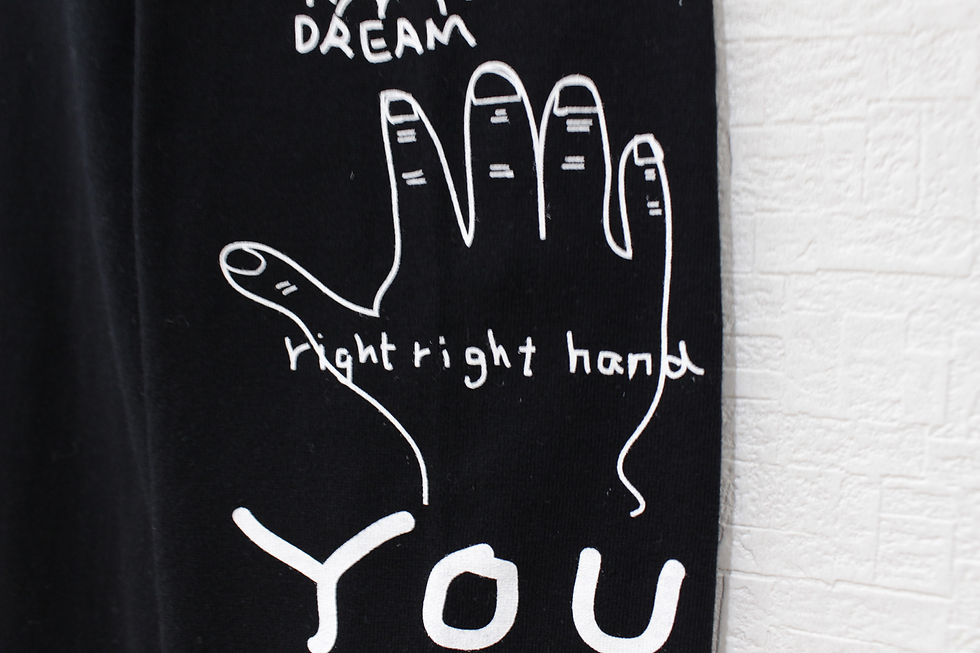 DREAM
right right hand
YOU